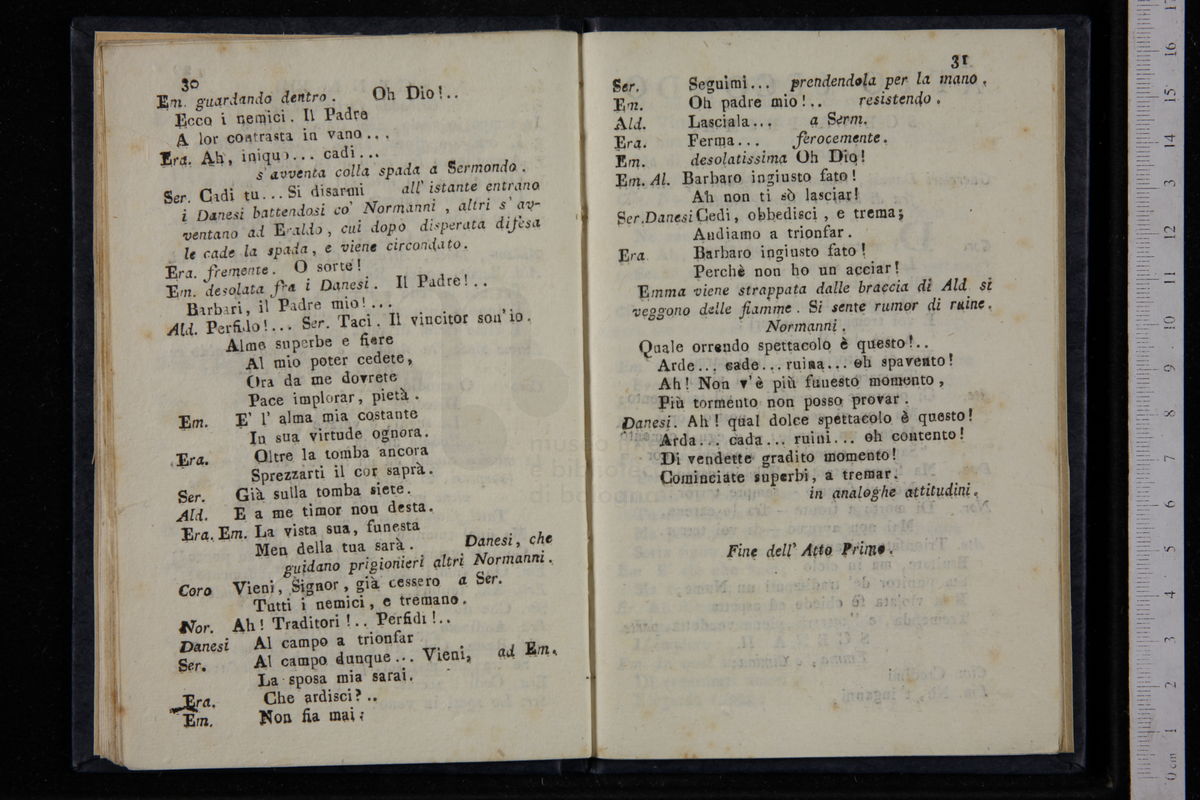 30
Em. guardando dentro. Oh Dio!..
Ecco i nemici. Il Padre
A lor contrasta in vano...
Era. Ah, iniquo... cadi...
s'avventa colla spada a Sermondo.
Ser. Cadi tu... Si disarmi all'istante entrano
i Danesi battendosi co' Normanni, altri s'av-
ventano ad Eraldo, cui dopo disperata difesa
le cade la spada, e viene circondato.
Era. fremente. O sorte!
Em. desolata fra i Danesi. Il Padre!..
Barbari, il Padre mio!...
Ald. Perfido!... Ser. Taci. Il vincitor son'io.
Alme superbe e fiere
Al mio poter cedete,
Ora da me dovrete
Pace implorar, pietà.
Em. E' l'alma mia costante
In sua virtude ognora.
Era. Oltre la tomba ancora
Sprezzarti il cor saprà.
Ser. Già sulla tomba siete.
Ald. E a me timor non desta.
Era. Em. La vista sua, funesta
Men della tua sarà. Danesi, che
guidano prigionieri altri Normanni.
Coro Vieni, Signor, già cessero a Ser.
Tutti i nemici, e tremano.
Nor. Ah! Traditori!.. Perfidi!..
Danesi Al campo a trionfar
Ser. Al campo dunque... Vieni, ad Em.
La sposa mia sarai.
Era. Che ardisci?..
Em. Non fia mai;
31
Ser. Seguimi... prendendola per la mano.
Em. Oh padre mio!.. resistendo.
Ald. Lasciala... a Serm.
Era. Ferma... ferocemente.
Em. desolatissima Oh Dio!
Em. Al. Barbaro ingiusto fato!
Ah non ti sò lasciar!
Ser. Danesi Cedi, obbedisci, e trema;
Andiamo a trionfar.
Era Barbaro ingiusto fato!
Perchè non ho un acciar!
Emma viene strappata dalle braccia di Ald si
veggono delle fiamme. Si sente rumor di ruine.
Normanni.
Quale orrendo spettacolo è questo!..
Arde... cade... ruina... oh spavento!
Ah! Non v'è più funesto momento,
Più tormento non posso provar.
Danesi. Ah! qual dolce spettacolo è questo!
Arda... cada... ruini... oh contento!
Di vendette gradito momento!
Cominciate superbi, a tremar.
in analoghe attitudini.
Fine dell' Atto Primo.